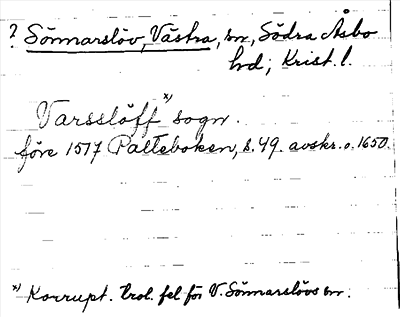 ? Sönnarslöv, Västra, sn, Södra Åsbo
hrd; Krist. l.
Varsslöff x) sogn.
före 1517 Palteboken, s. 49. avskr. o. 1650.
x) Korrupt. Trol. fel för V. Sönnarslövs sn.